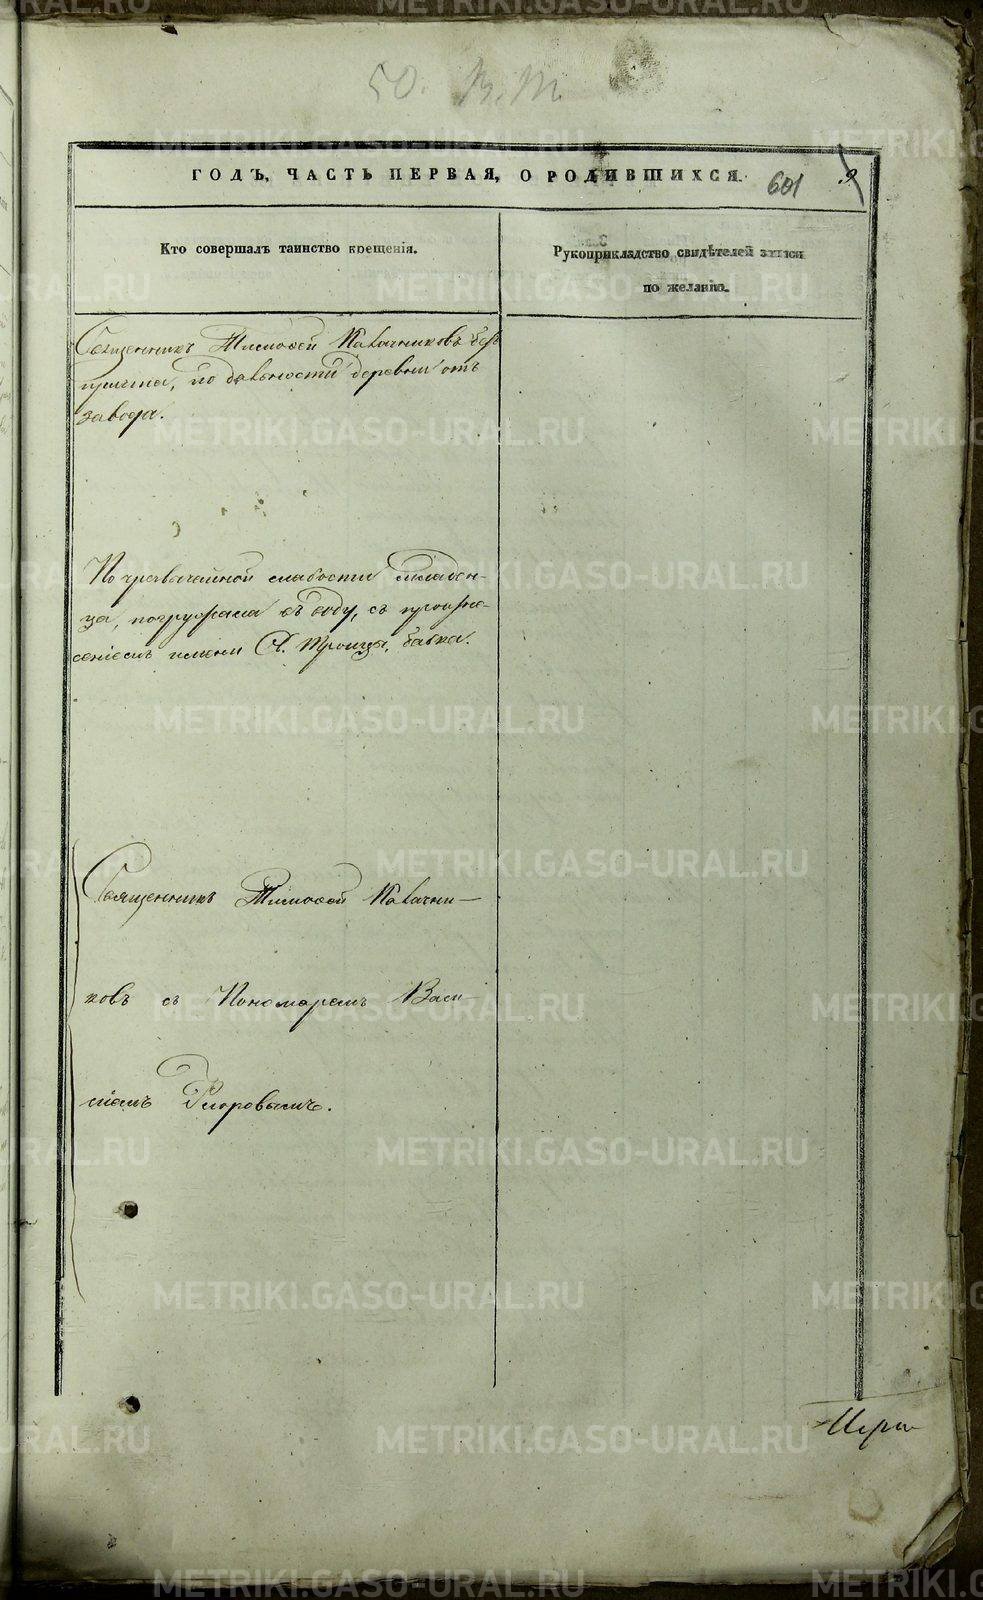 METRIKI.GASO-URAL.RU
50. В.М.
ГОДЪ, ЧАСТЬ ПЕРВАЯ, О РОДИВШИХСЯ. 601 9
Кто совершалъ таинство крещенія.
Рукоприкладство свидѣтелей записи
по желанію.
Священникъ Тимоѳей Калачниковъ безъ
причта, по дальности деревни отъ
завода.
По чрезвычайной слабости младен-
ца, погружала въ воду, съ произне-
сеніемъ имени Св. Троицы, бабка.
Священникъ Тимоѳей Калачни-
ковъ съ Пономаремъ Васи-
ліемъ